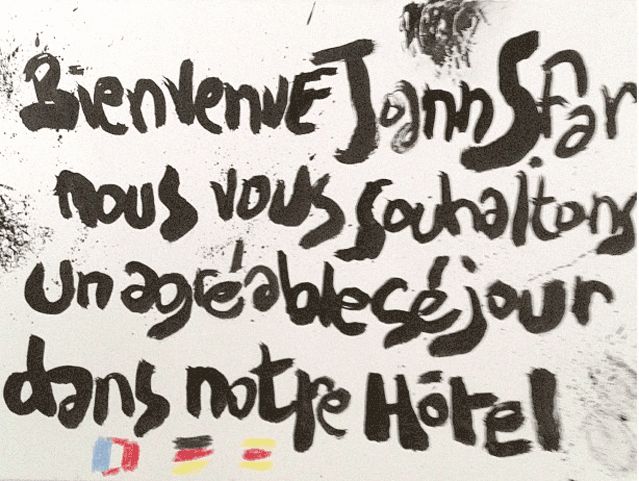 Bienvenue Joann Sfar
nous vous souhaitons
un agréable séjour
dans notre Hôtel